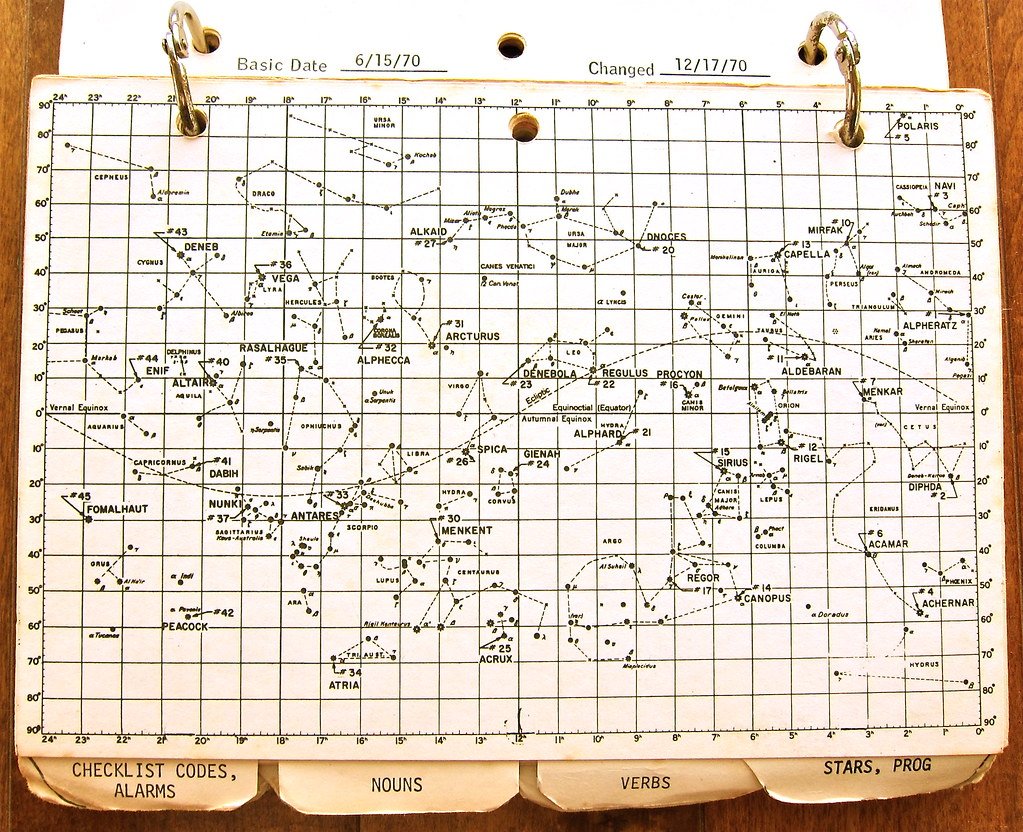 Basic Date 6/15/70
Changed 12/17/70
24ʰ 23ʰ 22ʰ 21ʰ 20ʰ 19ʰ 18ʰ 17ʰ 16ʰ 15ʰ 14ʰ 13ʰ 12ʰ 11ʰ 10ʰ 9ʰ 8ʰ 7ʰ 6ʰ 5ʰ 4ʰ 2ʰ 1ʰ 0ʰ
90°
URSA
MINOR
POLARIS
# 5
80° 80°
Kochab
70° 70°
CEPHEUS
Alderamin
DRACO
Dubhe
CASSIOPEIA NAVI
# 3
Caph
60° 60°
Mizar Alioth Megrez Merak
Phecda
Ruchbah
Schedir
# 43
Etamin
ALKAID
# 27
URSA
MAJOR
DNOCES
# 20
#10
MIRFAK
50° 50°
DENEB
CYGNUS
# 13
CAPELLA
Menkalinan
AURIGA
# 36
VEGA
LYRA
BOOTES
CANES VENATICI
12 Can. Venat.
Algol
PERSEUS
Almach
ANDROMEDA
40° 40°
HERCULES
α LYNCIS
Castor
Pollux
GEMINI
Mirach
TRIANGULUM
30° 30°
Scheat
PEGASUS
Albireo
CORONA
BOREALIS
# 31
ARCTURUS
El Nath
TAURUS
ALPHERATZ
Hamal
ARIES
Sheratan
20° 20°
Markab
DELPHINUS
RASALHAGUE
# 35
# 32
ALPHECCA
LEO
# 11
ALDEBARAN
Algenib
# 44
ENIF
# 40
ALTAIR
AQUILA
DENEBOLA
# 23
REGULUS
# 22
PROCYON
# 16
CANIS
MINOR
# 7
MENKAR
10° 10°
Unuk
α Serpentis
VIRGO
Ecliptic
Betelgeux
Bellatrix
ORION
Vernal Equinox
Equinoctial (Equator)
Autumnal Equinox
Vernal Equinox
0° 0°
AQUARIUS
η Serpentis
OPHIUCHUS
HYDRA
ALPHARD
# 21
CETUS
10° 10°
CAPRICORNUS
# 41
DABIH
Sabik
LIBRA
SPICA
# 26
GIENAH
# 24
# 15
SIRIUS
# 12
RIGEL
DIPHDA
# 2
20° 20°
# 45
FOMALHAUT
NUNKI
# 37
# 33
ANTARES
Dschubba
HYDRA
CORVUS
CANIS
MAJOR
Adhara
LEPUS
30° 30°
SAGITTARIUS
Kaus-Australis
SCORPIO
# 30
MENKENT
Phact
COLUMBA
ERIDANUS
# 6
ACAMAR
40° 40°
Shaula
ARGO
GRUS
Al Na'ir
α Indi
LUPUS
CENTAURUS
Al Suhail
REGOR
# 17
# 14
CANOPUS
PHOENIX
# 4
ACHERNAR
50° 50°
α Pavonis
# 42
PEACOCK
ARA
α Doradus
60° 60°
α Tucanae
Rigil Kentaurus
# 25
ACRUX
70° 70°
TRI. AUST.
# 34
ATRIA
Miaplacidus
HYDRUS
80° 80°
90° 90°
23ʰ 22ʰ 21ʰ 20ʰ 19ʰ 18ʰ 17ʰ 16ʰ 15ʰ 14ʰ 13ʰ 12ʰ 11ʰ 10ʰ 9ʰ 8ʰ 7ʰ 6ʰ 5ʰ 4ʰ 3ʰ 2ʰ 1ʰ 0ʰ
CHECKLIST CODES,
ALARMS
NOUNS
VERBS
STARS, PROG